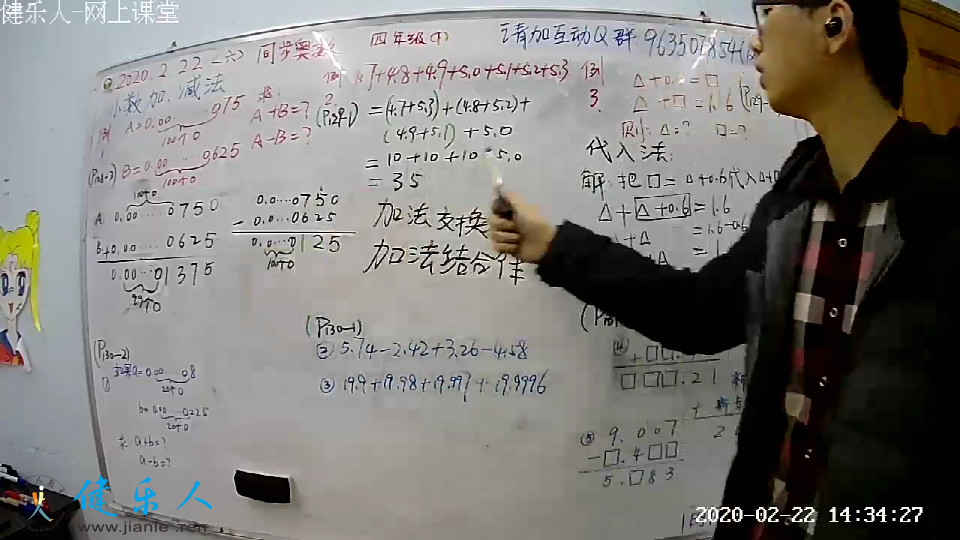 健乐人-网上课堂
2020.2.22<六> 同步奥数 四年级(下) 请加互动Q群
小数加、减法
例 4.7+4.8+4.9+5.0+5.1+5.2+5.3
2.
(P129-1) =(4.7+5.3)+(4.8+5.2)+
(4.9+5.1)+5.0
=10+10+10+5.0
=35
加法交换
加法结合律
例
1
A=0.00 975
求
A+B=?
B=0.00 0625
A-B=?
A 0.00....0750
B+0.00....0625
0.00...01375
0.0...0750
-0.0...0625
0.0...0125
例
3.
△+0.6=□
△+□=1.6
则:△=? □=?
代入法:
解:把□=△+0.6代入△+□
△+△+0.6=1.6
△+△=1.6-0.6
(P130-1)
② 5.74-2.42+3.26-4.58
③ 19.9+19.98+19.997+19.9996
(P130-2)
① 如果a=0.00 08
b=0.00 0225
求 a+b=?
a-b=?
④
□□□.21
⑤ 9.007
-□.4□□
5.□83
健乐人
www.jianle.ren
2020-02-22 14:34:27